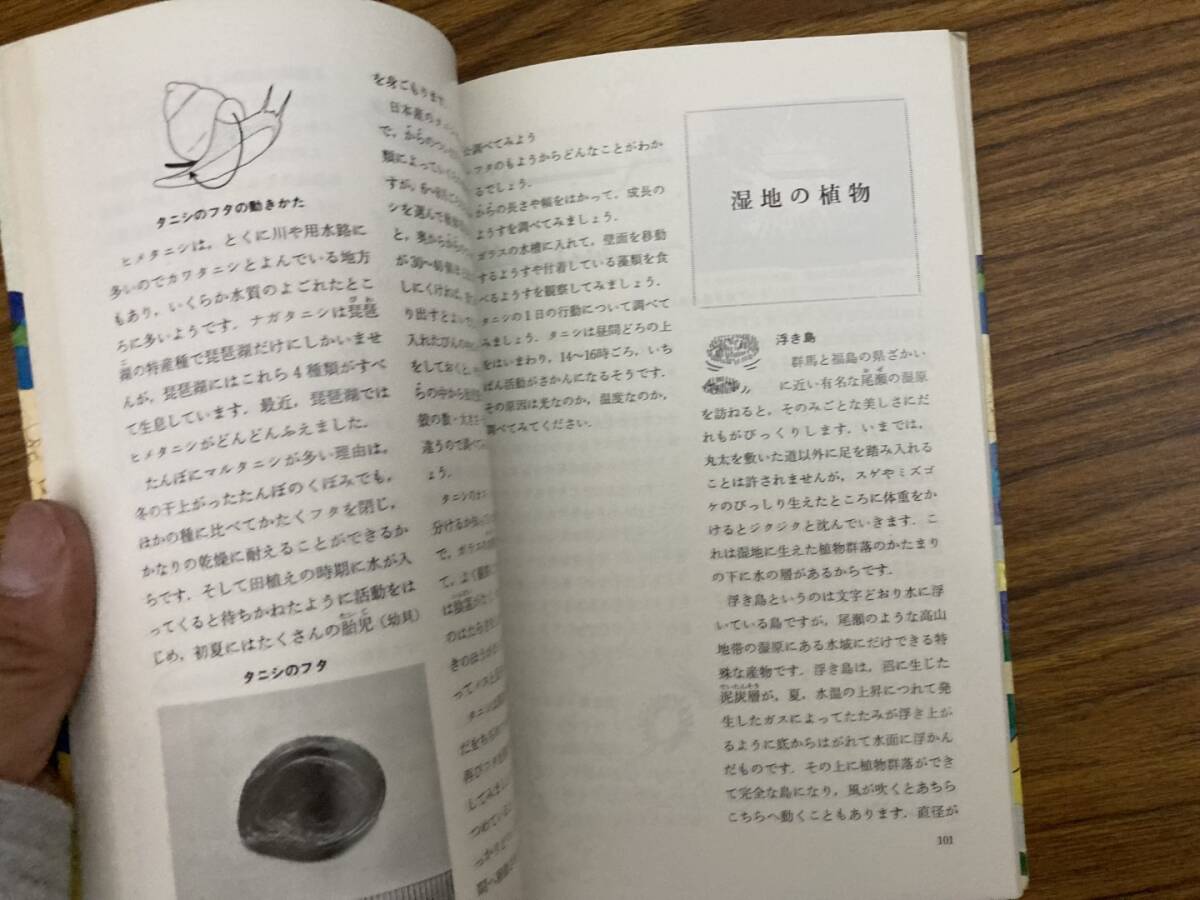 タニシのフタの動きかた
ヒメタニシは，とくに川や用水路に
多いのでカワタニシとよんでいる地方
もあり，いくらか水質のよごれたとこ
ろに多いようです．ナガタニシは琵琶
湖の特産種で琵琶湖だけにしかいませ
んが，琵琶湖にはこれら4種類がすべ
て生息しています．最近，琵琶湖では
ヒメタニシがどんどんふえました．
たんぼにマルタニシが多い理由は，
冬の干上がったたんぼのくぼみでも，
ほかの種に比べてかたくフタを閉じ，
かなりの乾燥に耐えることができるか
らです．そして田植えの時期に水が入
ってくると待ちかねたように活動をは
じめ，初夏にはたくさんの胎児（幼貝）
タニシのフタ
を身ごもります．
日本産のタニシ
で，からのつ
類によっていく
すが，6〜
シを選んで
と，奥から
が30〜40
しにくければ，
り出すとよい
入れたびんの
をしておくと，
らの中から
殻の数・大きさ
違うので調べて
ょう．
タニシのオ
分けるか知って
で，ガラス
て，よく観察
は触角が
のはたらき
きのほうが
ってメスと
タニシは
だをちぢめ
再びフタを
してみまし
つめている
っかりと
間へ
調べてみよう
フタのもようからどんなことがわか
るでしょう．
からの長さや幅をはかって，成長の
ようすを調べてみましょう．
ガラスの水槽に入れて，壁面を移動
するようすや付着している藻類を食
べるようすを観察してみましょう．
タニシの1日の行動について調べて
みましょう．タニシは昼間どろの上
をはいまわり，14〜16時ごろ，いち
ばん活動がさかんになるそうです．
その原因は光なのか，温度なのか，
調べてみてください．
湿地の植物
浮き島
群馬と福島の県ざかい
に近い有名な尾瀬の湿原
を訪ねると，そのみごとな美しさにだ
れもがびっくりします．いまでは，
丸太を敷いた道以外に足を踏み入れる
ことは許されませんが，スゲやミズゴ
ケのびっしり生えたところに体重をか
けるとジクジクと沈んでいきます．こ
れは湿地に生えた植物群落のかたまり
の下に水の層があるからです．
浮き島というのは文字どおり水に浮
いている島ですが，尾瀬のような高山
地帯の湿原にある水域にだけできる特
殊な産物です．浮き島は，沼に生じた
泥炭層が，夏，水温の上昇につれて発
生したガスによってたたみが浮き上が
るように底からはがれて水面に浮かん
だものです．その上に植物群落ができ
て完全な島になり，風が吹くとあちら
こちらへ動くこともあります．直径が
101